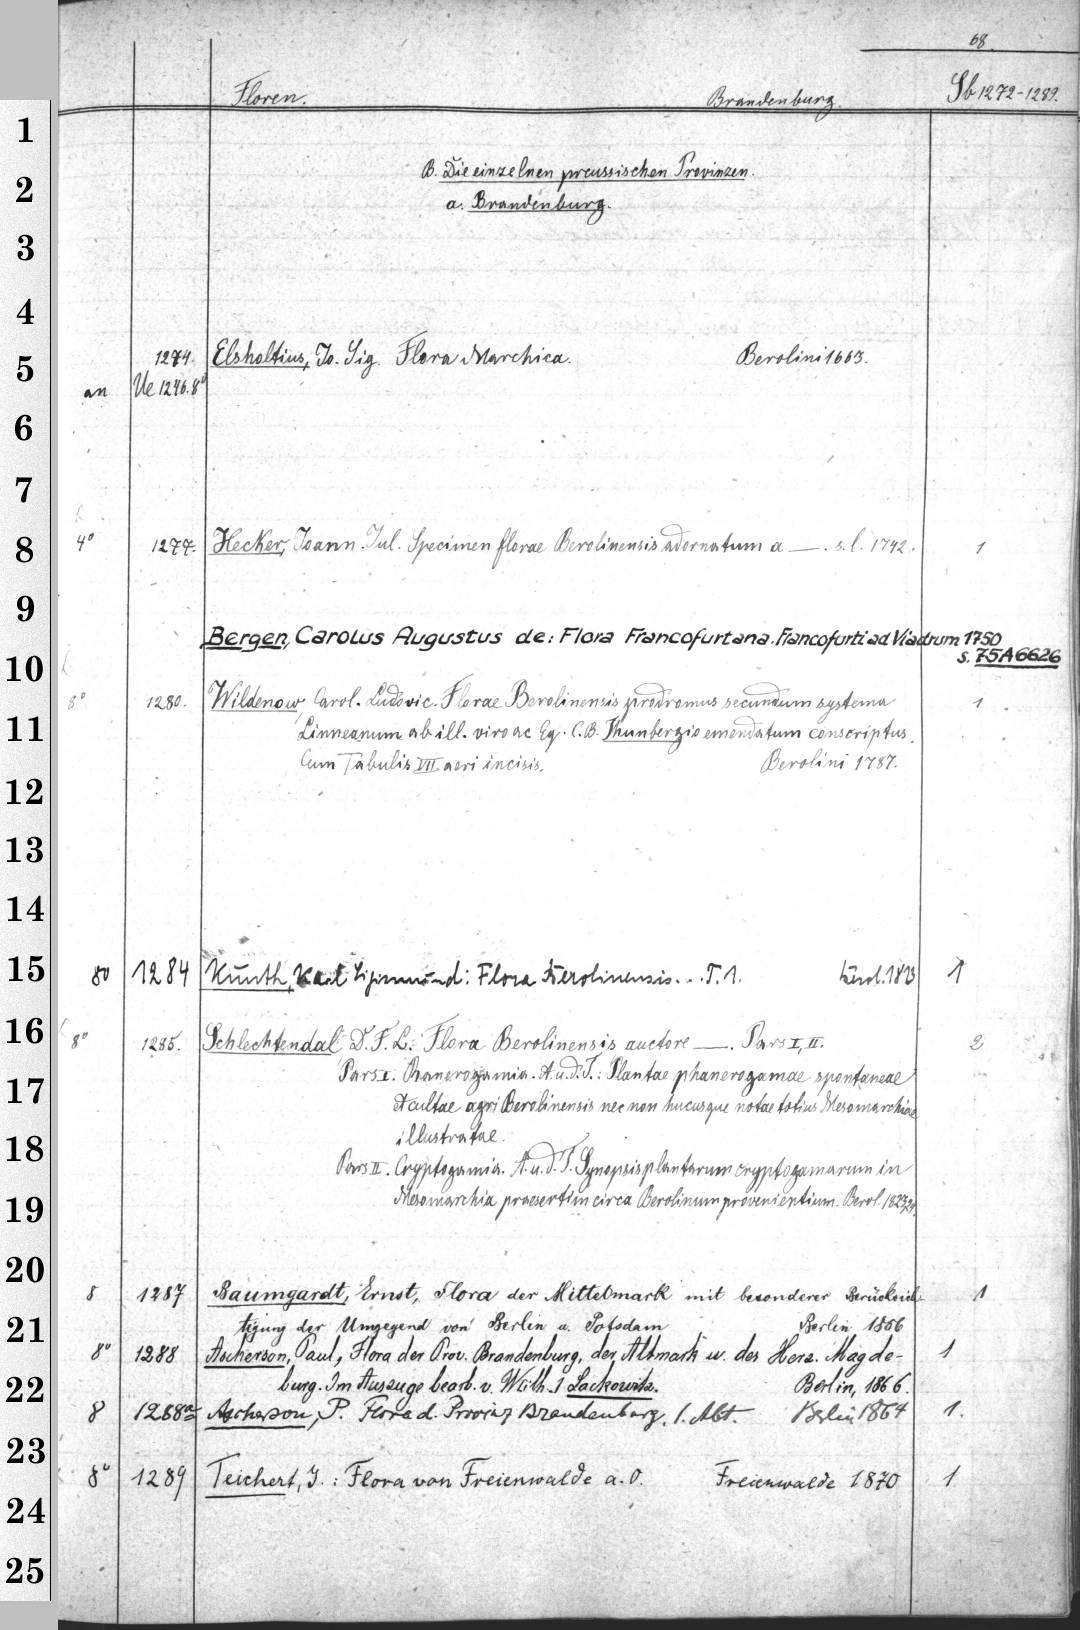 68
Floren. Brandenburg. Sb 1272-1289.
1
B. Die einzelnen preussischen Provinzen.
2
a. Brandenburg.
3
4
1274. Elsholtius, Jo. Sig. Flora Marchica. Berolini 1663.
5
an Ue 1246. 8°
6
7
4° 1277. Hecker, Joann. Jul. Specimen florae Berolinensis adornatum a —. s. l. 1742. 1
8
9
Bergen, Carolus Augustus de: Flora Francofurtana. Francofurti ad Viadrum 1750
s. 75A6626
10
8° 1280. Wildenow, Carol. Ludovic. Florae Berolinensis prodromus secundum systema 1
11
Linneanum ab ill. viro ac Eq. C. B. Thunbergio emendatum conscriptus.
Cum Tabulis VII aeri incisis. Berolini 1787.
12
13
14
15
80 1284 Kunth, Karl Sigismund: Flora Berolinensis... T. 1. 1813 1
16
8° 1285. Schlechtendal D. F. L. Flora Berolinensis auctore —. Pars I, II. 2
17
Pars I. Phanerogamia. A. u. d. T.: Plantae phanerogamae spontaneae
et cultae agri Berolinensis nec non hucusque notae totius Mesomarchiae
illustratae.
18
Pars II. Cryptogamia. A. u. d. T. Synopsis plantarum cryptogamarum in
19
Mesomarchia praesertim circa Berolinum provenientium. Berol. 1823/24.
20
8 1287 Baumgardt, Ernst, Flora der Mittelmark mit besonderer Berücksich- 1
21
tigung der Umgegend von Berlin u. Potsdam Berlin 1856
8° 1288 Ascherson, Paul, Flora der Prov. Brandenburg, der Altmark u. des Herz. Magde- 1
22
burg. Im Auszuge bearb. v. Wilh. Lackowitz. Berlin, 1866.
8 1288a Ascherson, P. Flora d. Provinz Brandenburg. 1. Abt. Berlin 1864 1.
23
8° 1289 Teichert, J.: Flora von Freienwalde a. O. Freienwalde 1870 1
24
25